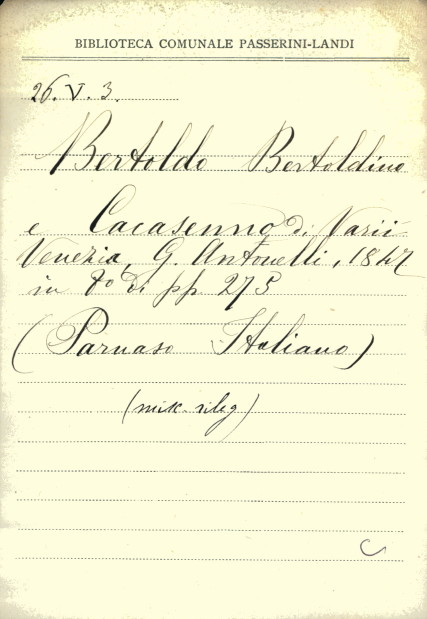 BIBLIOTECA COMUNALE PASSERINI-LANDI
26. V. 3.
Bertoldo Bertoldino
e Cacasenno di Varii
Venezia, G. Antonelli, 1847
in 8° di pp. 275
(Parnaso Italiano)
(misc. rileg)
C